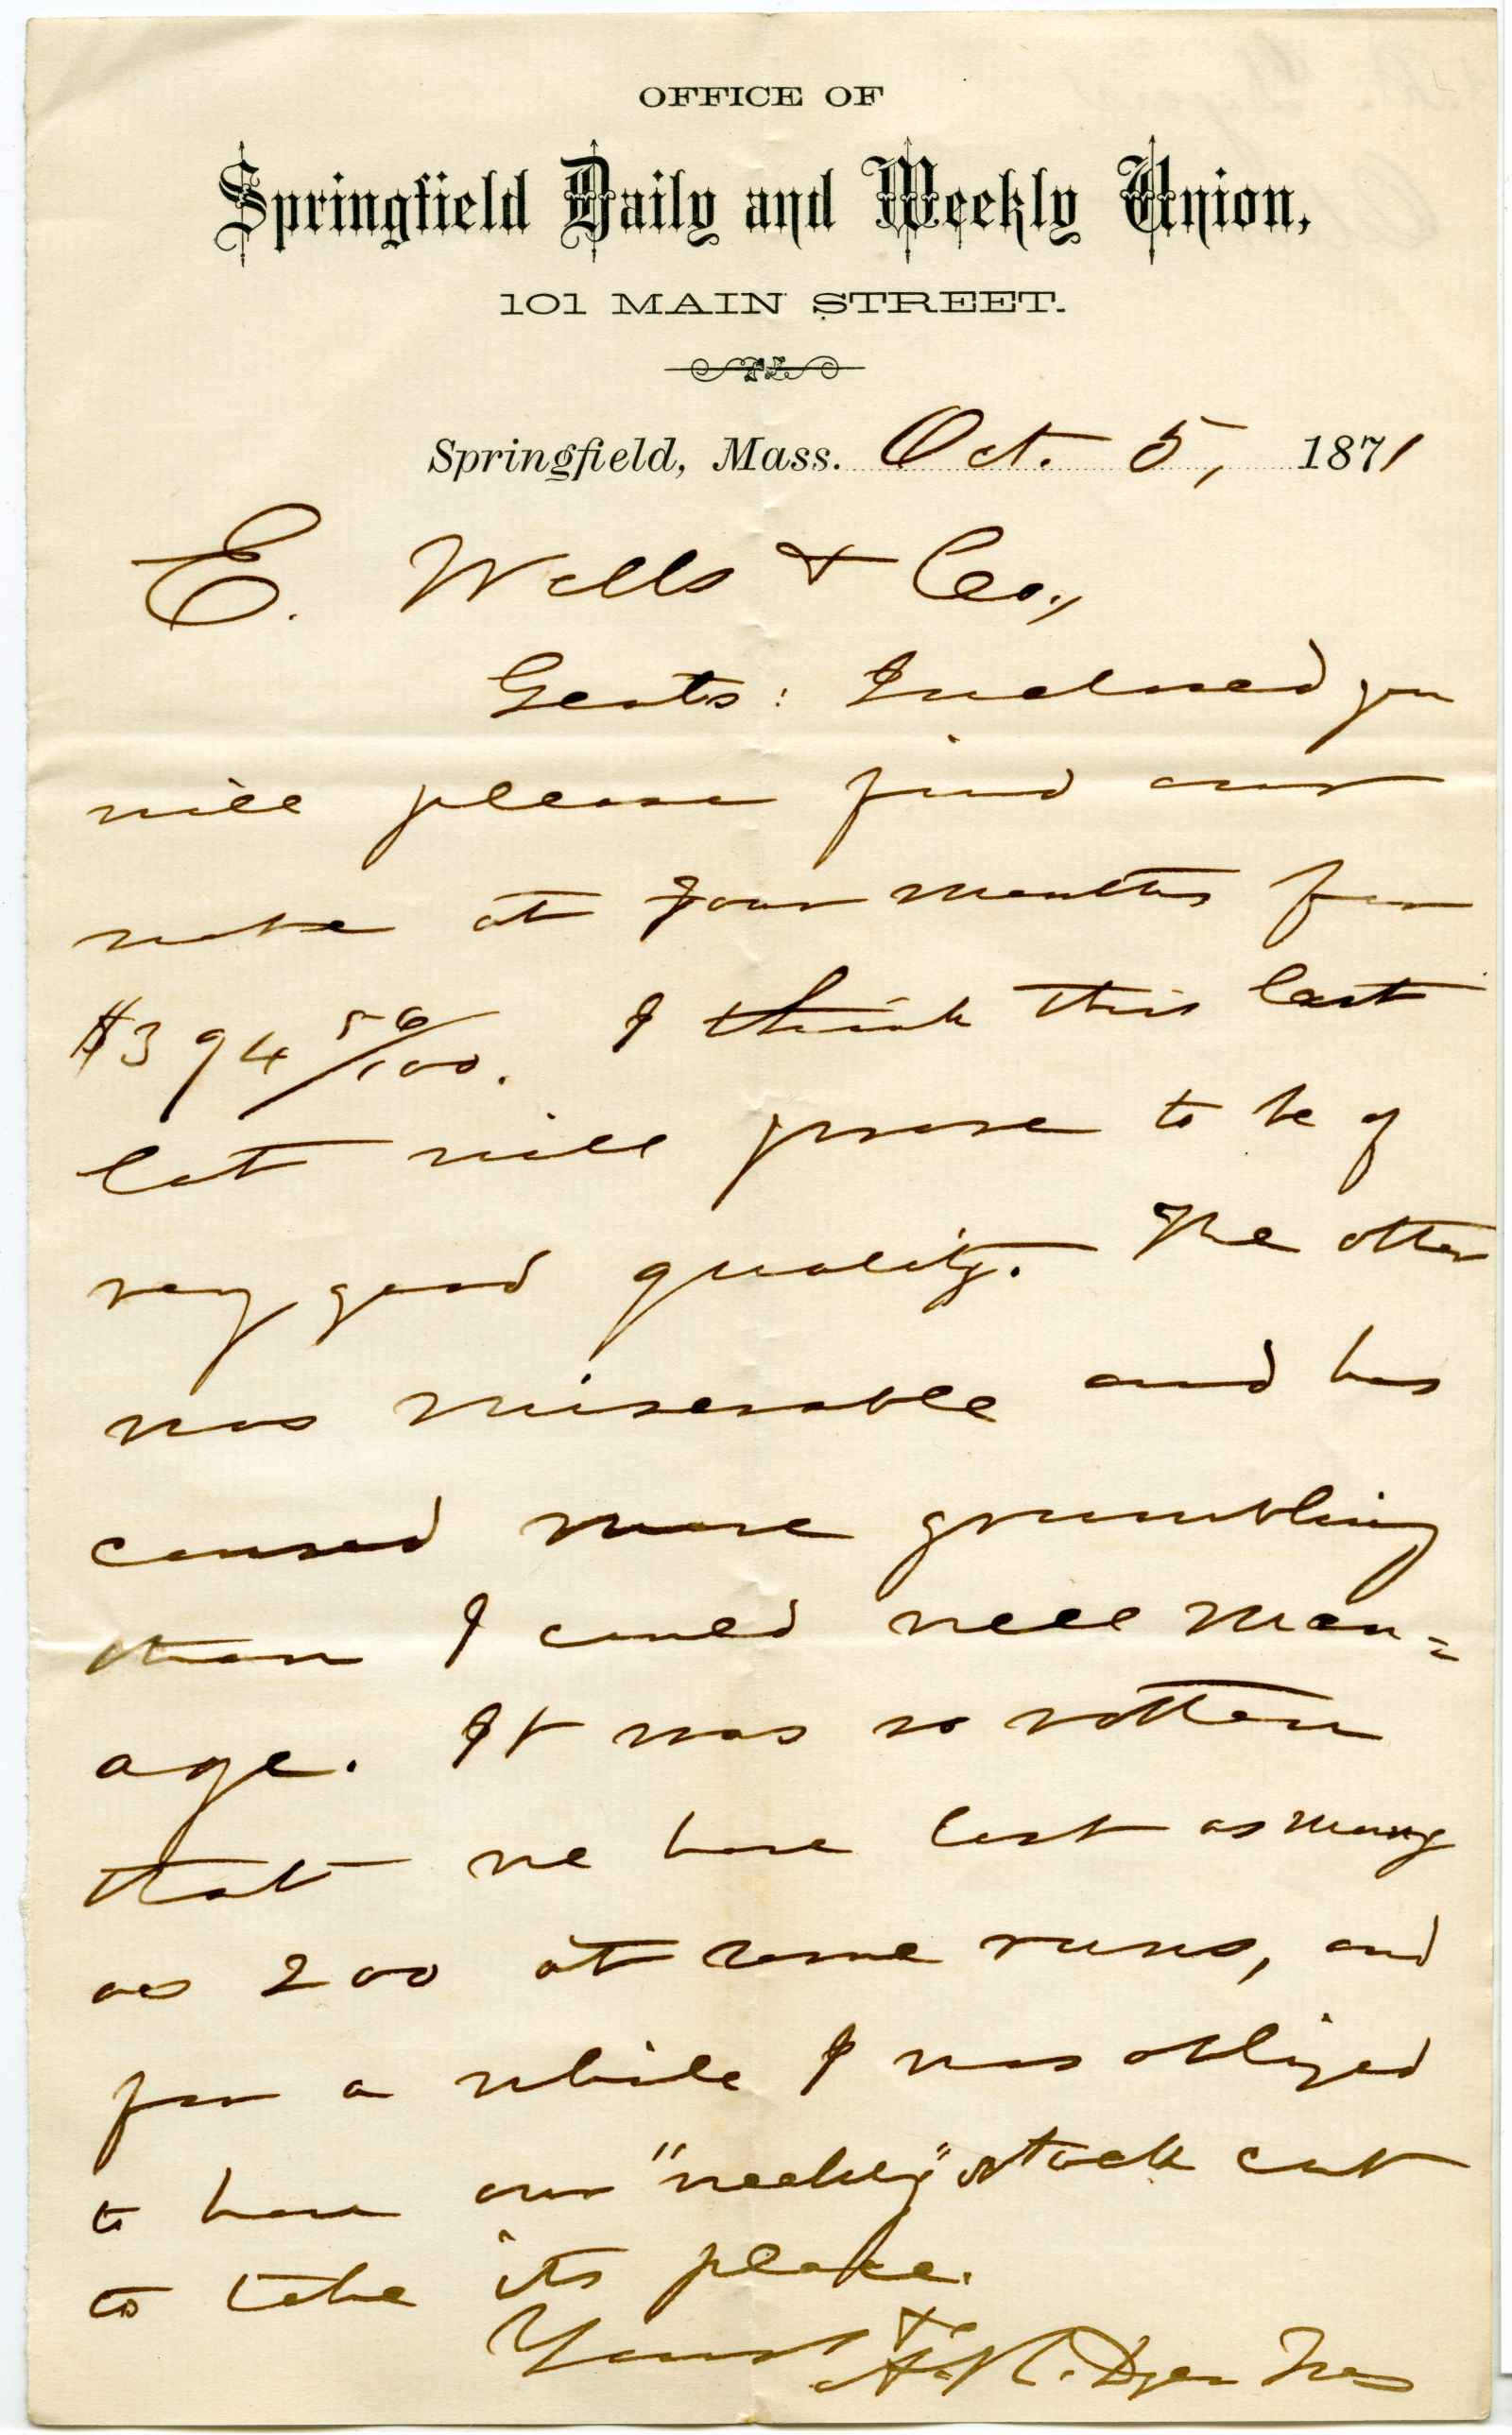 OFFICE OF
Springfield Daily and Weekly Union,
101 MAIN STREET.
Springfield, Mass. Oct. 5, 1871
E. Wells & Co.,
Gents: Inclosed you
will please find our
note at four months for
$394 56/100. I think this last
lot will prove to be of
very good quality. The other
was miserable and has
caused more grumbling
than I could well man=
age. It was so rotten
that we have lost as many
as 200 at some runs, and
for a while I was obliged
to have our "weekly" stock cut
to take its place.
Yours &c
A. N. Dyer Tres